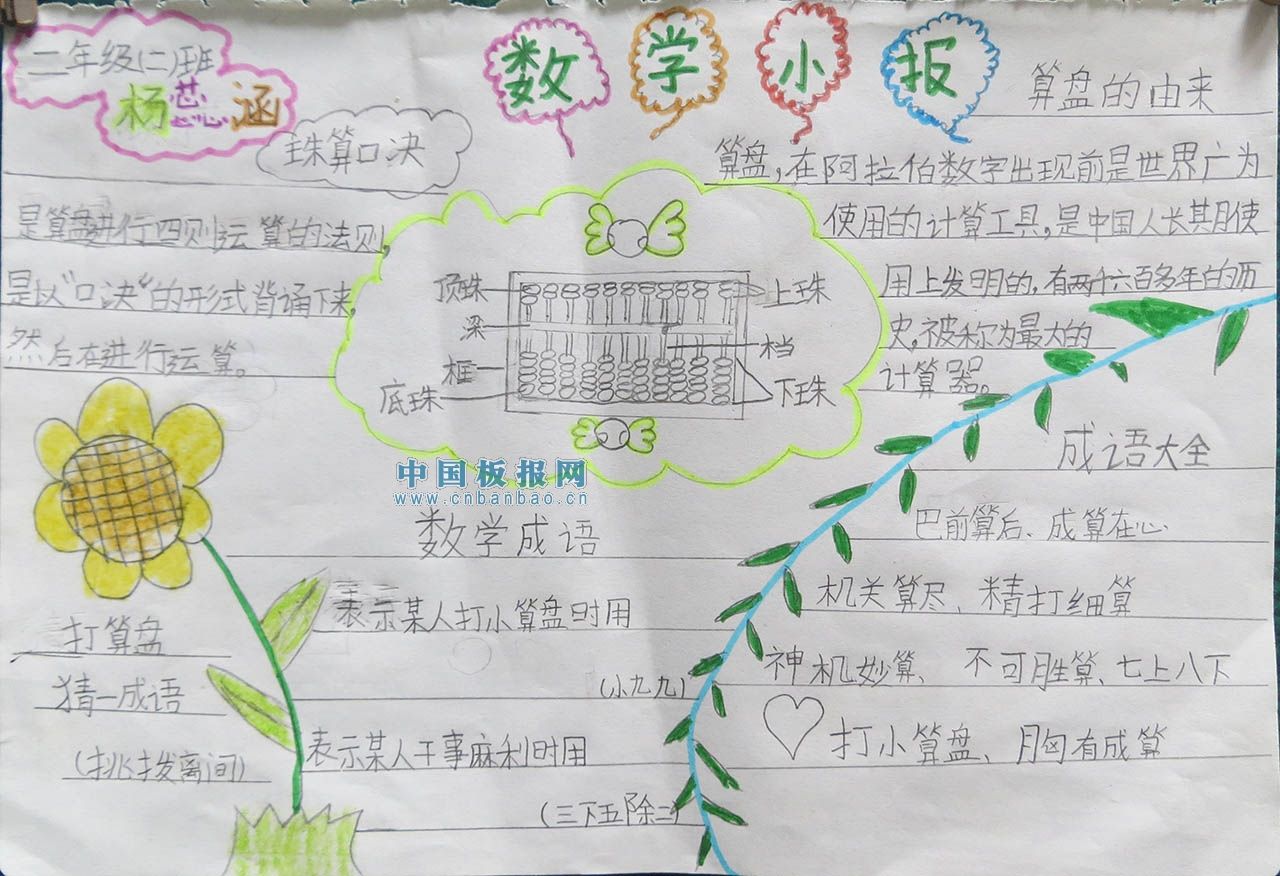 二年级(二)班
杨芯涵
数学小报
珠算口决
是算盘进行四则运算的法则,
是以"口决"的形式背诵下来,
然后在进行运算。
算盘的由来
算盘,在阿拉伯数字出现前是世界广为
使用的计算工具,是中国人长其月使
用上发明的,有两千六百多年的历
史,被称为最大的
计算器。
顶珠
梁
框
底珠
上珠
档
下珠
中国板报网
www.cnbanbao.cn
成语大全
巴前算后、成算在心
机关算尽、精打细算
神机妙算、不可胜算、七上八下
打小算盘、胸有成算
数学成语
表示某人打小算盘时用
(小九九)
表示某人干事麻利时用
(三下五除二)
打算盘
猜一成语
(挑拨离间)